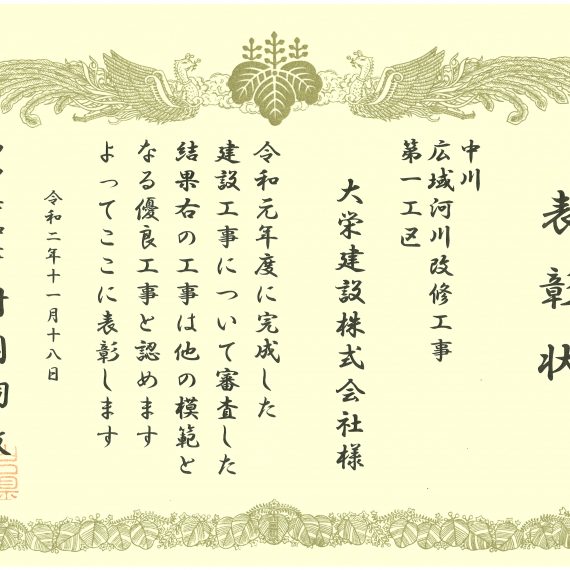 表彰状
中川
広域河川改修工事
第一工区
大栄建設株式会社様
令和元年度に完成した
建設工事について審査した
結果右の工事は他の模範と
なる優良工事と認めます
よってここに表彰します
令和二年十一月十八日